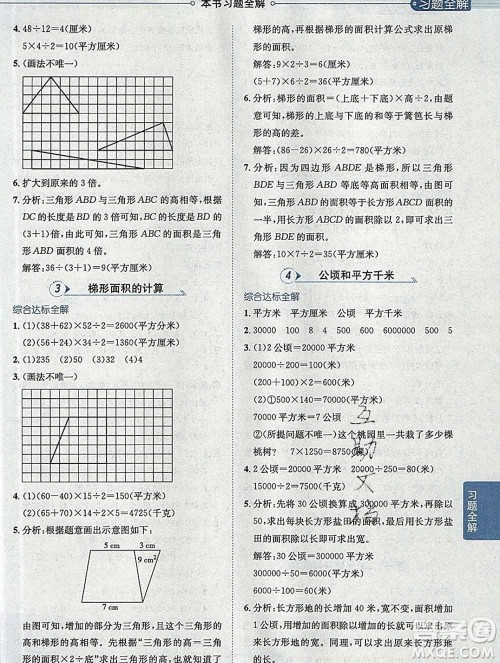 本书习题全解
习题全解
4. 48÷12=4(厘米)
5×4÷2=10(平方厘米)
5. (画法不唯一)
6. 扩大到原来的3倍。
7. 分析:三角形ABD与三角形ABC的高相等,根据
DC的长度是BD的3倍可知,BC的长度是BD的
(3+1)倍。由此可知,三角形ABC面积是三角
形ABD面积的4倍。
解答:36÷(3+1)=9(平方厘米)
3 梯形面积的计算
综合达标全解
1. (1)(38+62)×52÷2=2600(平方分米)
(2)(56+24)×34÷2=1360(平方厘米)
2. (1)235 (2)50 (3)50 (4)4
3. (画法不唯一)
4. (1)(10+15)×8÷2=100(平方厘米)
(2)(65+70)×14÷2×5=4725(千克)
5. 分析:根据题意画出示意图如下:
5 cm 3 cm
9 cm²
7 cm
由图可知,增加的面积为三角形的面积,三角形
的高和梯形的高相等。根据“三角形的高=三角
形面积×2÷底”求出三角形的高,也就是原来
梯形的高,再根据梯形的面积计算公式求出原梯
形的面积。
解答:9×2÷3=6(厘米)
(5+7)×6÷2=36(平方厘米)
6. 分析:梯形的面积=(上底+下底)×高÷2,由
题意可知,梯形的上底与下底的和等于篱笆长与
梯形的高的差。
解答:(86-26)×26÷2=780(平方米)
7. 分析:因为四边形ABDE是梯形,所以三角形
BDE与三角形ABD等底等高面积相等,由图可
知,三角形ABD的面积是长方形ABCD面积的
一半,用长方形ABCD的面积除以2,即可求出三
角形BDE的面积。
解答:10×7÷2=35(平方厘米)
4 公顷和平方千米
综合达标全解
1. 平方米 平方厘米 公顷 平方千米
2. 30000 100 8 4 500 6000000 5 500
3. (1)2公顷=20000平方米
20000÷100=200(米)
(200+100)×2=600(米)
(2)①500×140=70000(平方米)
70000平方米=7公顷
②(所提问题不唯一)这个桃园里一共栽了多少棵
桃树? 7×1250=8750(棵)
4. 2公顷=20000平方米 20000÷250=80(米)
2×15000÷2=15000(千克)
5. 分析:先将30公顷换算成300000平方米,除以
50,求出每块长方形盐田的面积,再除以长方形盐
田的长即可求出宽。
解答:30公顷=300000平方米
300000÷50=6000(平方米)
6000÷100=60(米)
6. 分析:长方形地的长增加40米,宽不变,面积就
增加1公顷。用增加的面积除以增加的长,求出
原来长方形地的宽。同理,可以求出原来长方形
习题全解
互
助
文